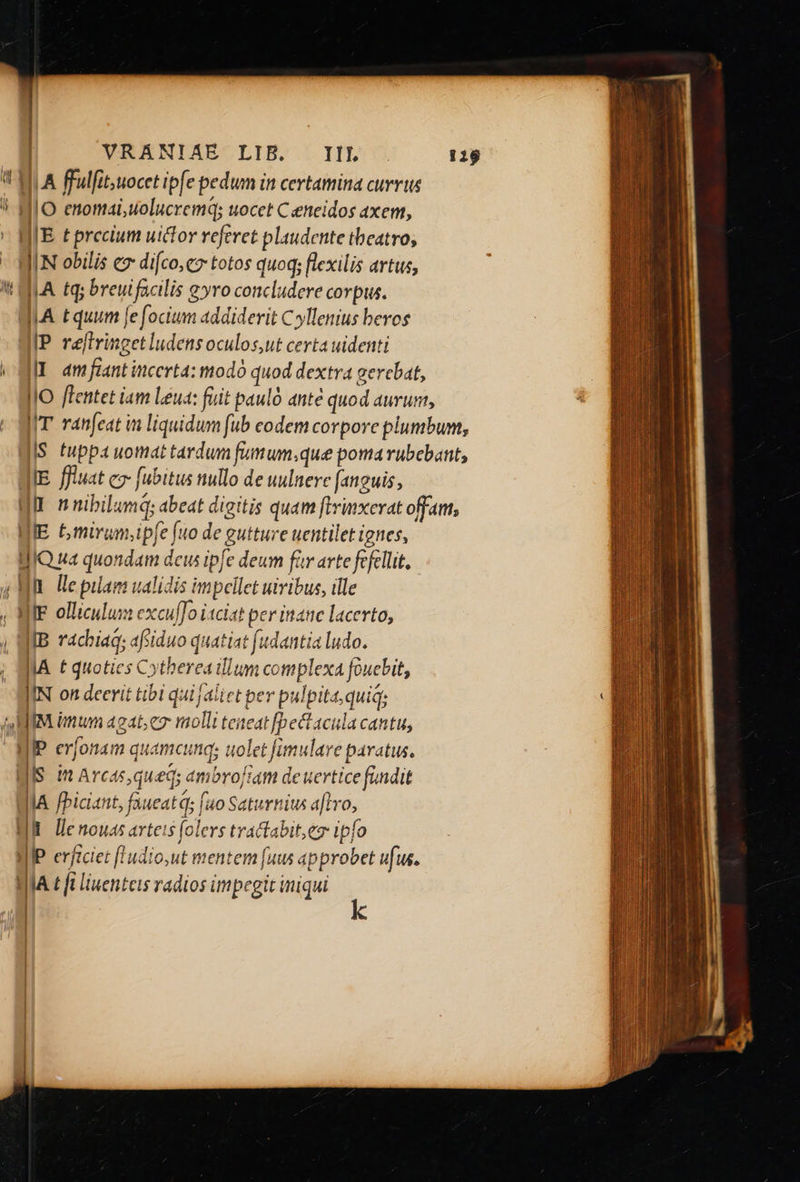 VRANIAE LIB. III. 129
A ſſulſit, uocet ipſe pedum in certamina currus
O enomai, uolucremq; uocet Cæneidos axem,
E t precium uictor referet plaudente theatro,
N obilis & diſco, & totos quoq; flexilis artus,
A tq; breui facilis gyro concludere corpus.
A t quum ſe ſocium addiderit Cyllenius heros
P ræſtringet ludens oculos, ut certa uidenti
I am fiant incerta: modò quod dextra gerebat,
O ſtentet iam læua: fuit paulò antè quod aurum,
T ranſeat in liquidum ſub eodem corpore plumbum,
S tuppa uomat tardum fumum, quæ poma rubebant,
E ffluat & ſubitus nullo de uulnere ſanguis,
I n nibilumq; abeat digitis quam ſtrinxerat offam,
E t, mirum, ipſe ſuo de gutture uentilet ignes,
Q ua quondam deus ipſe deum fur arte fefellit.
I lle pilam ualidis impellet uiribus, ille
F olliculum excuſſo iaciat per inane lacerto,
B rachiaq; aſsiduo quatiat ſudantia ludo.
A t quoties Cytherea illum complexa fouebit,
N on deerit tibi qui ſaliet per pulpita, quiq;
M imum agat, & molli teneat ſpectacula cantu,
P erſonam quamcunq; uolet ſimulare paratus.
S in Arcas, quæq; ambroſiam de uertice fundit
A ſpiciant, faueatq; ſuo Saturnius aſtro,
I lle nouas arteis ſolers tractabit, & ipſo
P erficiet ſtudio, ut mentem ſuus approbet uſus.
A t ſi liuenteis radios impegit iniqui
k